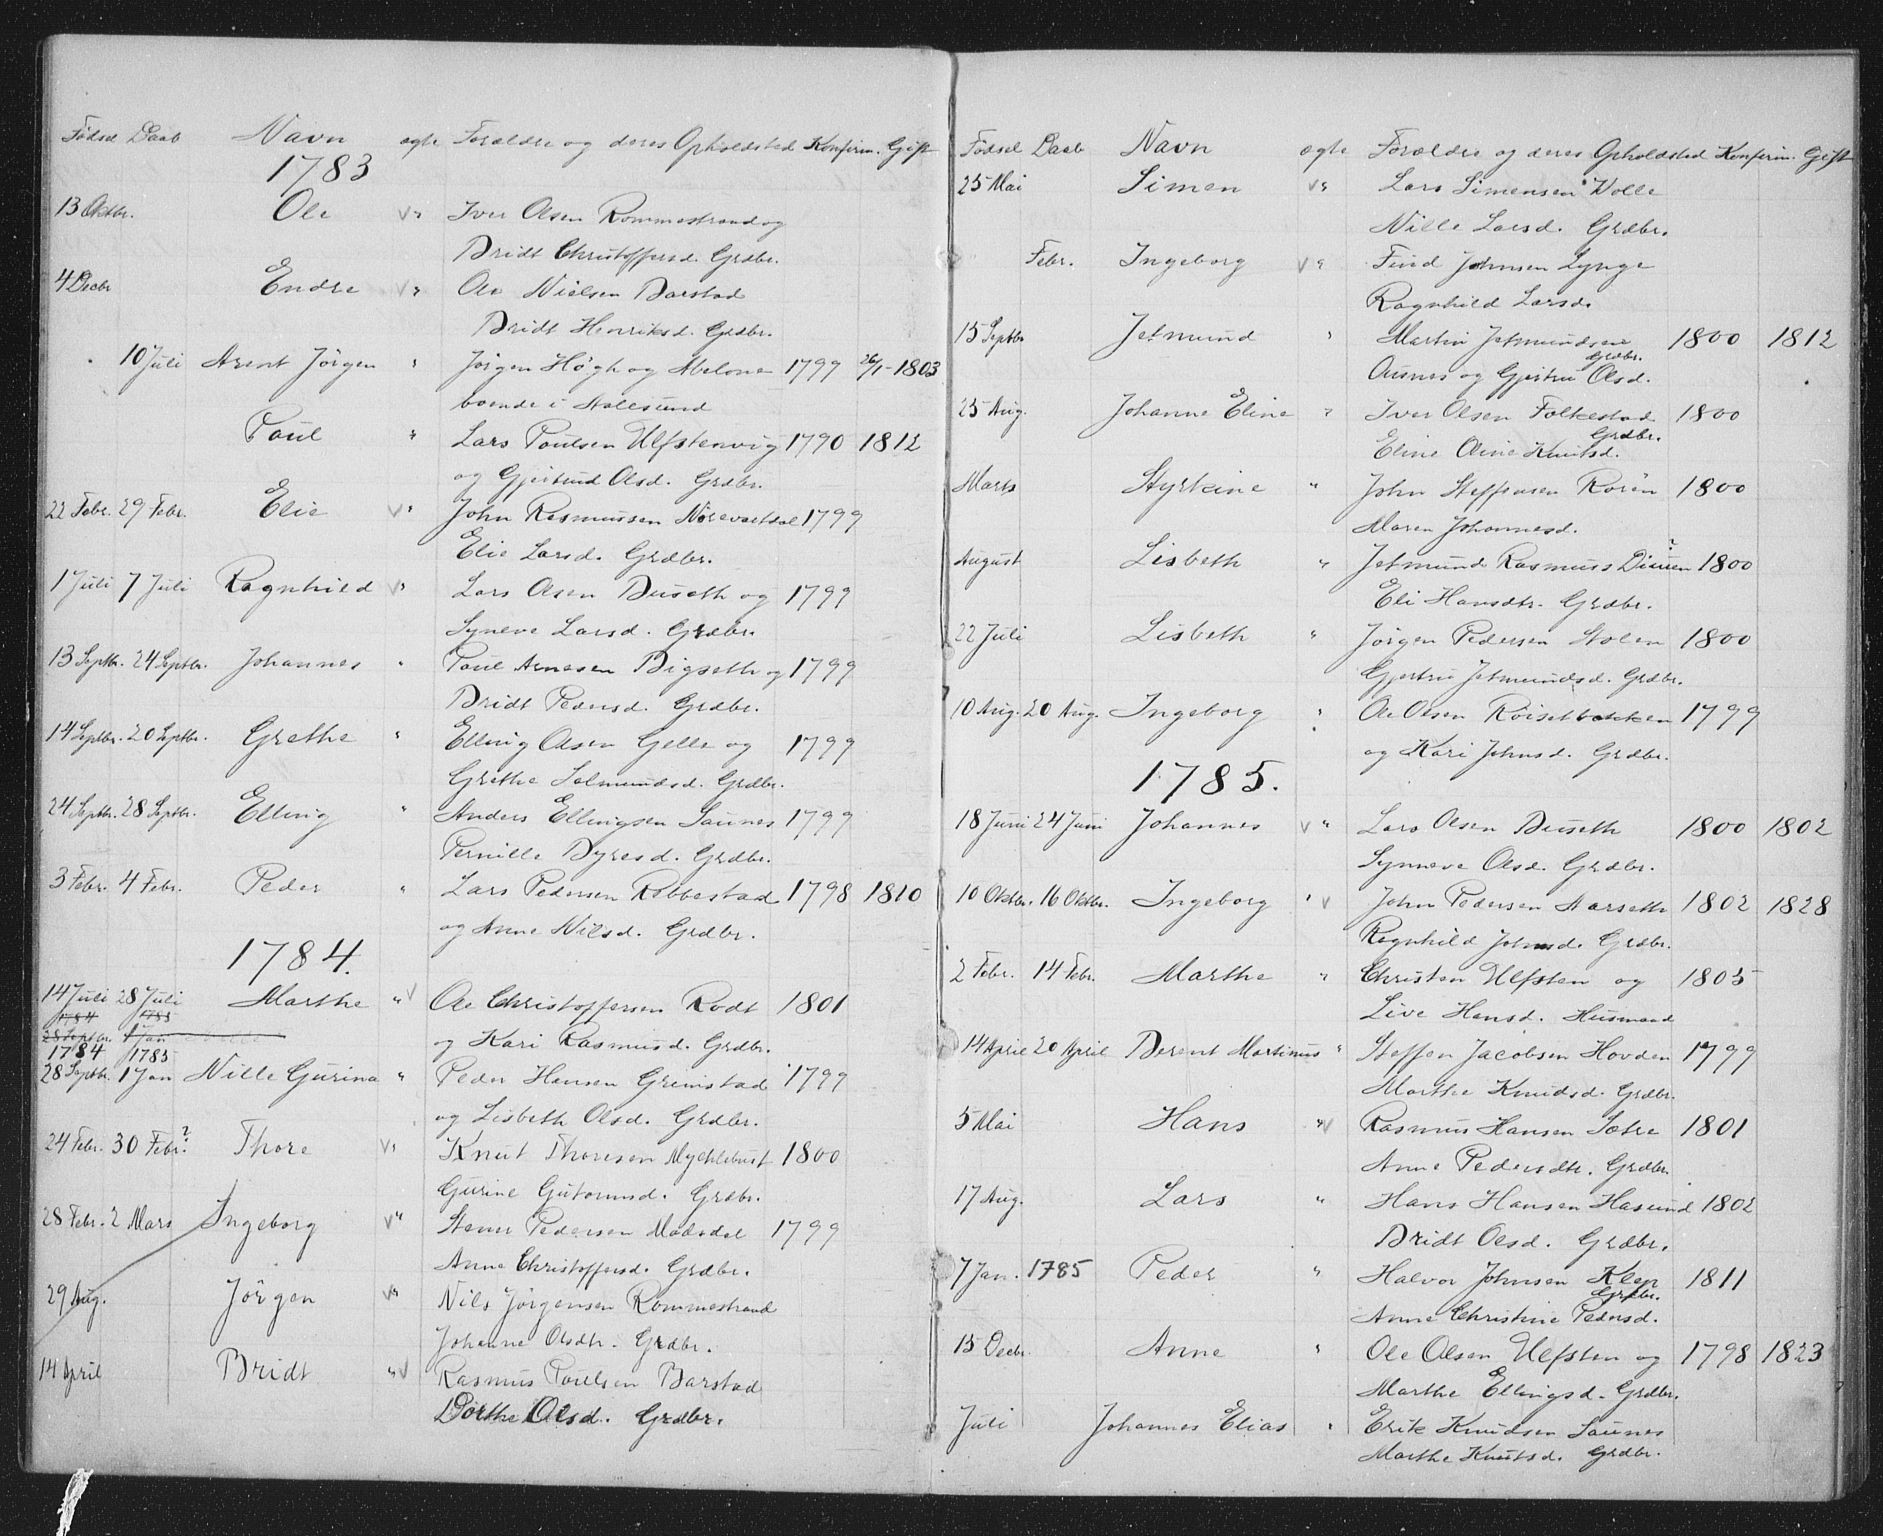 Fødsel Daab Navn ægte Forældre og deres Opholdsted Konfirm. Gift
1783
13 Oktbr. Ole V " Iver Olsen Rommestrand og
Bridt Christoffersd. Grdbr.
4 Decbr Endre V " Ole Nielsen Barstad
Bridt Henriksd. Grdbr.
10 Juli Arent Jörgen " Jörgen Högh og Abelone 1799 26/1-1803
boende i Aalesund
Poul " Lars Poulsen Ulfstenvig 1790 1812
og Gjertrud Olsd. Grdbr.
22 Febr. 29 Febr. Elie V " John Rasmussen Nörevartdal 1799
Elie Larsd. Grdbr.
1 Juli 7 Juli Ragnhild V " Lars Olsen Buseth og 1799
Syneve Larsd. Grdbr.
13 Septbr. 24 Septbr. Johannes " Poul Arnesen Bigseth og 1799
Bridt Pedersd. Grdbr.
14 Septbr. 20 Septbr. Grethe " Elling Olsen Gelle og 1799
Grethe Salmundsd. Grdbr.
24 Septbr. 28 Septbr. Elling " Anders Ellingsen Saunes 1799
Pernille Dyresd. Grdbr.
3 Febr. 4 Febr. Peder " Lars Pedersen Robbestad 1798 1810
og Anne Nilsd. Grdbr.
1784.
14 Juli 28 Juli Marthe " V Ole Christoffersen Rodt 1801
1784 1785
28 Septbr. 1 Jan og Kari Rasmusd. Grdbr.
1784 1785
28 Septbr. 1 Jan Nille Gurina " Peder Hansen Grimstad 1799
og Lisbeth Olsd. Grdbr.
24 Febr. 30 Febr.? Thore V " Knut Thoresen Mychlebust 1800
Gurine Gutormsd. Grdbr.
28 Febr. 2 Mars Ingeborg V " Stener Pedersen Modsdal 1799
Anne Christoffersd. Grdbr.
29 Aug. Jörgen V " Nils Jörgensen Rommestrand
Johanne Olsdtr. Grdbr.
14 April Bridt " V Rasmus Poulsen Barstad
Dorthe Olsd. Grdbr.
Fødsel Daab Navn ægte Forældre og deres Opholdsted Konfirm. Gift
25 Mai Simen V " Lars Simensen Volle
Nille Larsd. Grdbr.
Febr. Ingeborg V " Find Johnsen Lynge
Ragnhild Larsd.
15 Septbr Jetmund " Martin Jetmundsene 1800 1812
Grdbr.
Ausnes og Gjertru Olsd.
25 Aug. Johanne Eline " Iver Olsen Folkestad 1800
Grdbr.
Eline Oline Knutsd.
Marts Styrkine " John Steffensen Rorön 1800
Maren Johannesd.
August Lisbeth " Jetmund Rasmuss Dimen? 1800
Eli Hansdtr. Grdbr.
22 Juli Lisbeth " Jörgen Pedersen Stolen 1800
Gjertru Jetmundsd. Grdbr.
10 Aug. 20 Aug. Ingeborg " Ole Olsen Roisetbakken 1799
og Kari Johnsd. Grdbr.
1785.
18 Juni 24 Juni Johannes V " Lars Olsen Buseth 1800 1802
Synneve Olsd. Grdbr.
10 Oktbr. 16 Oktbr. Ingeborg " V John Pedersen Aarseth 1802 1828
Ragnhild Johnsd. Grdbr.
2 Febr. 14 Febr. Marthe " Christen Ulfsten og 1805
Live Hansd. Husmand
14 April 20 April Berent Martinus " Steffen Jacobsen Hovden 1799
Marthe Knudsd. Grdbr.
5 Mai Hans " V Rasmus Hansen Sætre 1801
Anne Pedersdtr. Grdbr.
17 Aug. Lars " Hans Hansen Hasund 1802
Bridt Olsd. Grdbr.
7 Jan. 1785 Peder " Halvor Johnsen Klep 1811
Grdbr.
Anne Christine Pedersd.
15 Decbr. Anne " Ole Olsen Ulfsten og 1798 1823
Marthe Ellingsd. Grdbr.
Juli Johannes Elias " Erik Knudsen Saunes
Marthe Knutsd. Grdbr.